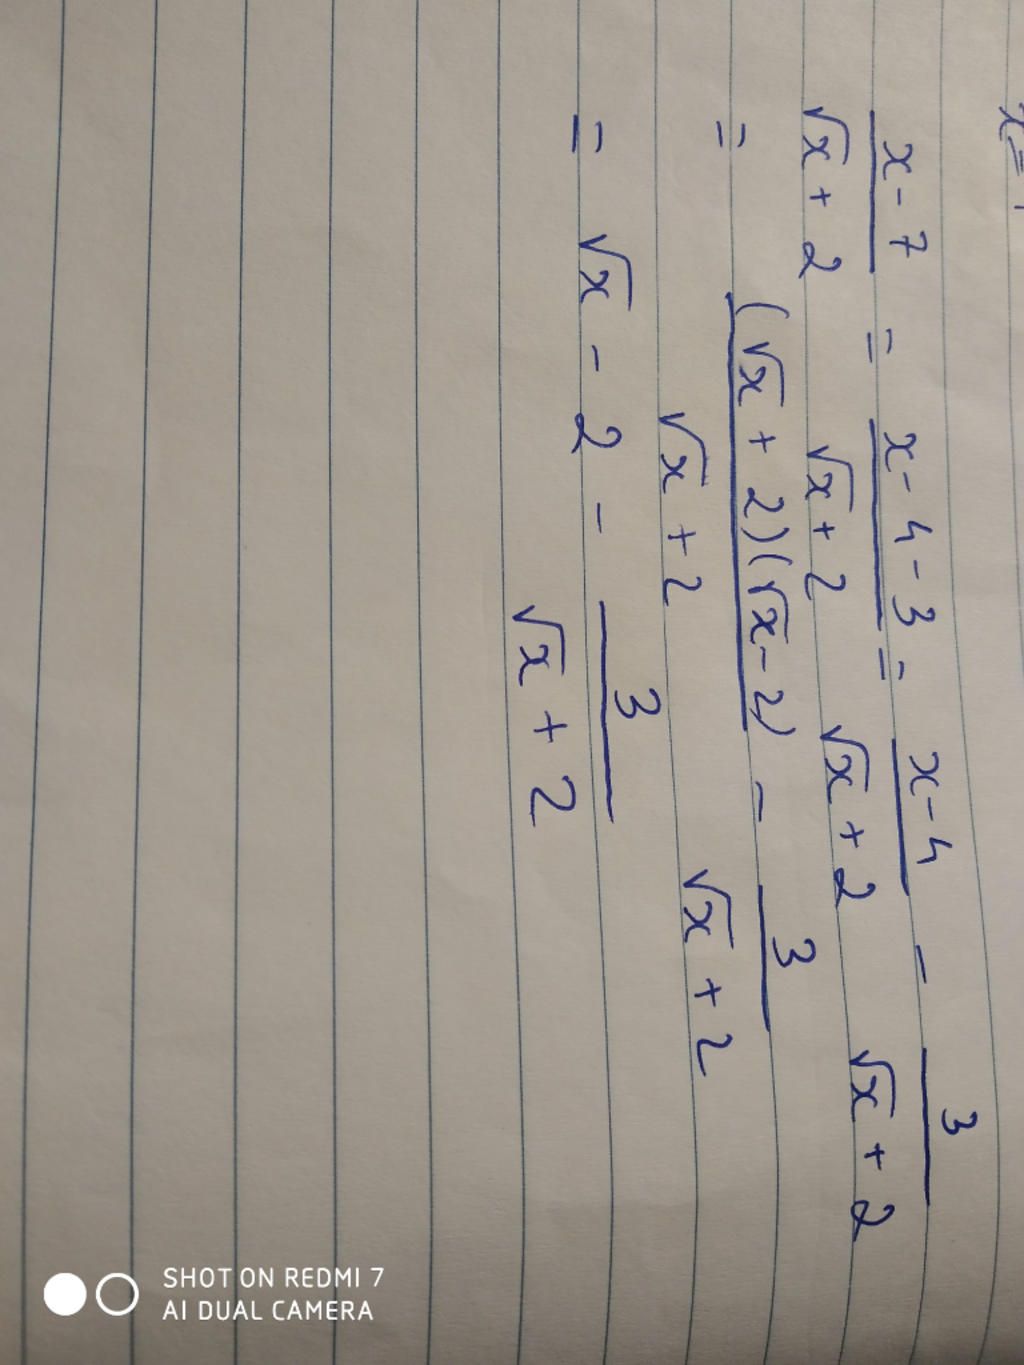 x = 1
x - 7 / √x + 2 = x - 4 - 3 / √x + 2 = x - 4 / √x + 2 - 3 / √x + 2
= (√x + 2)(√x - 2) / √x + 2 - 3 / √x + 2
= √x - 2 - 3 / √x + 2
SHOT ON REDMI 7
AI DUAL CAMERA